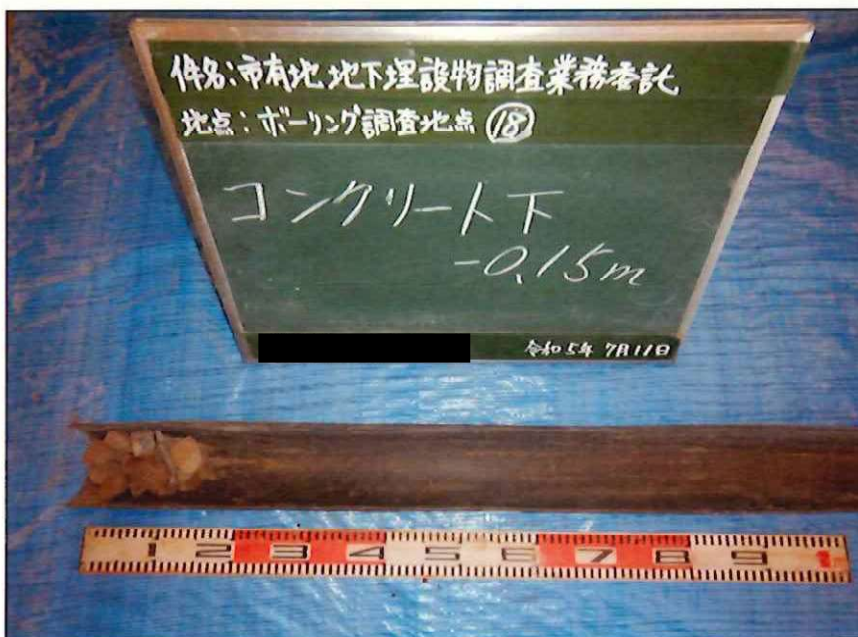 件名:市有地地下埋設物調査業務委託
地点:ボーリング調査地点 ⑱
コンクリート下
-0.15m
令和5年 7月11日
1 2 3 4 5 6 7 8 9 1m